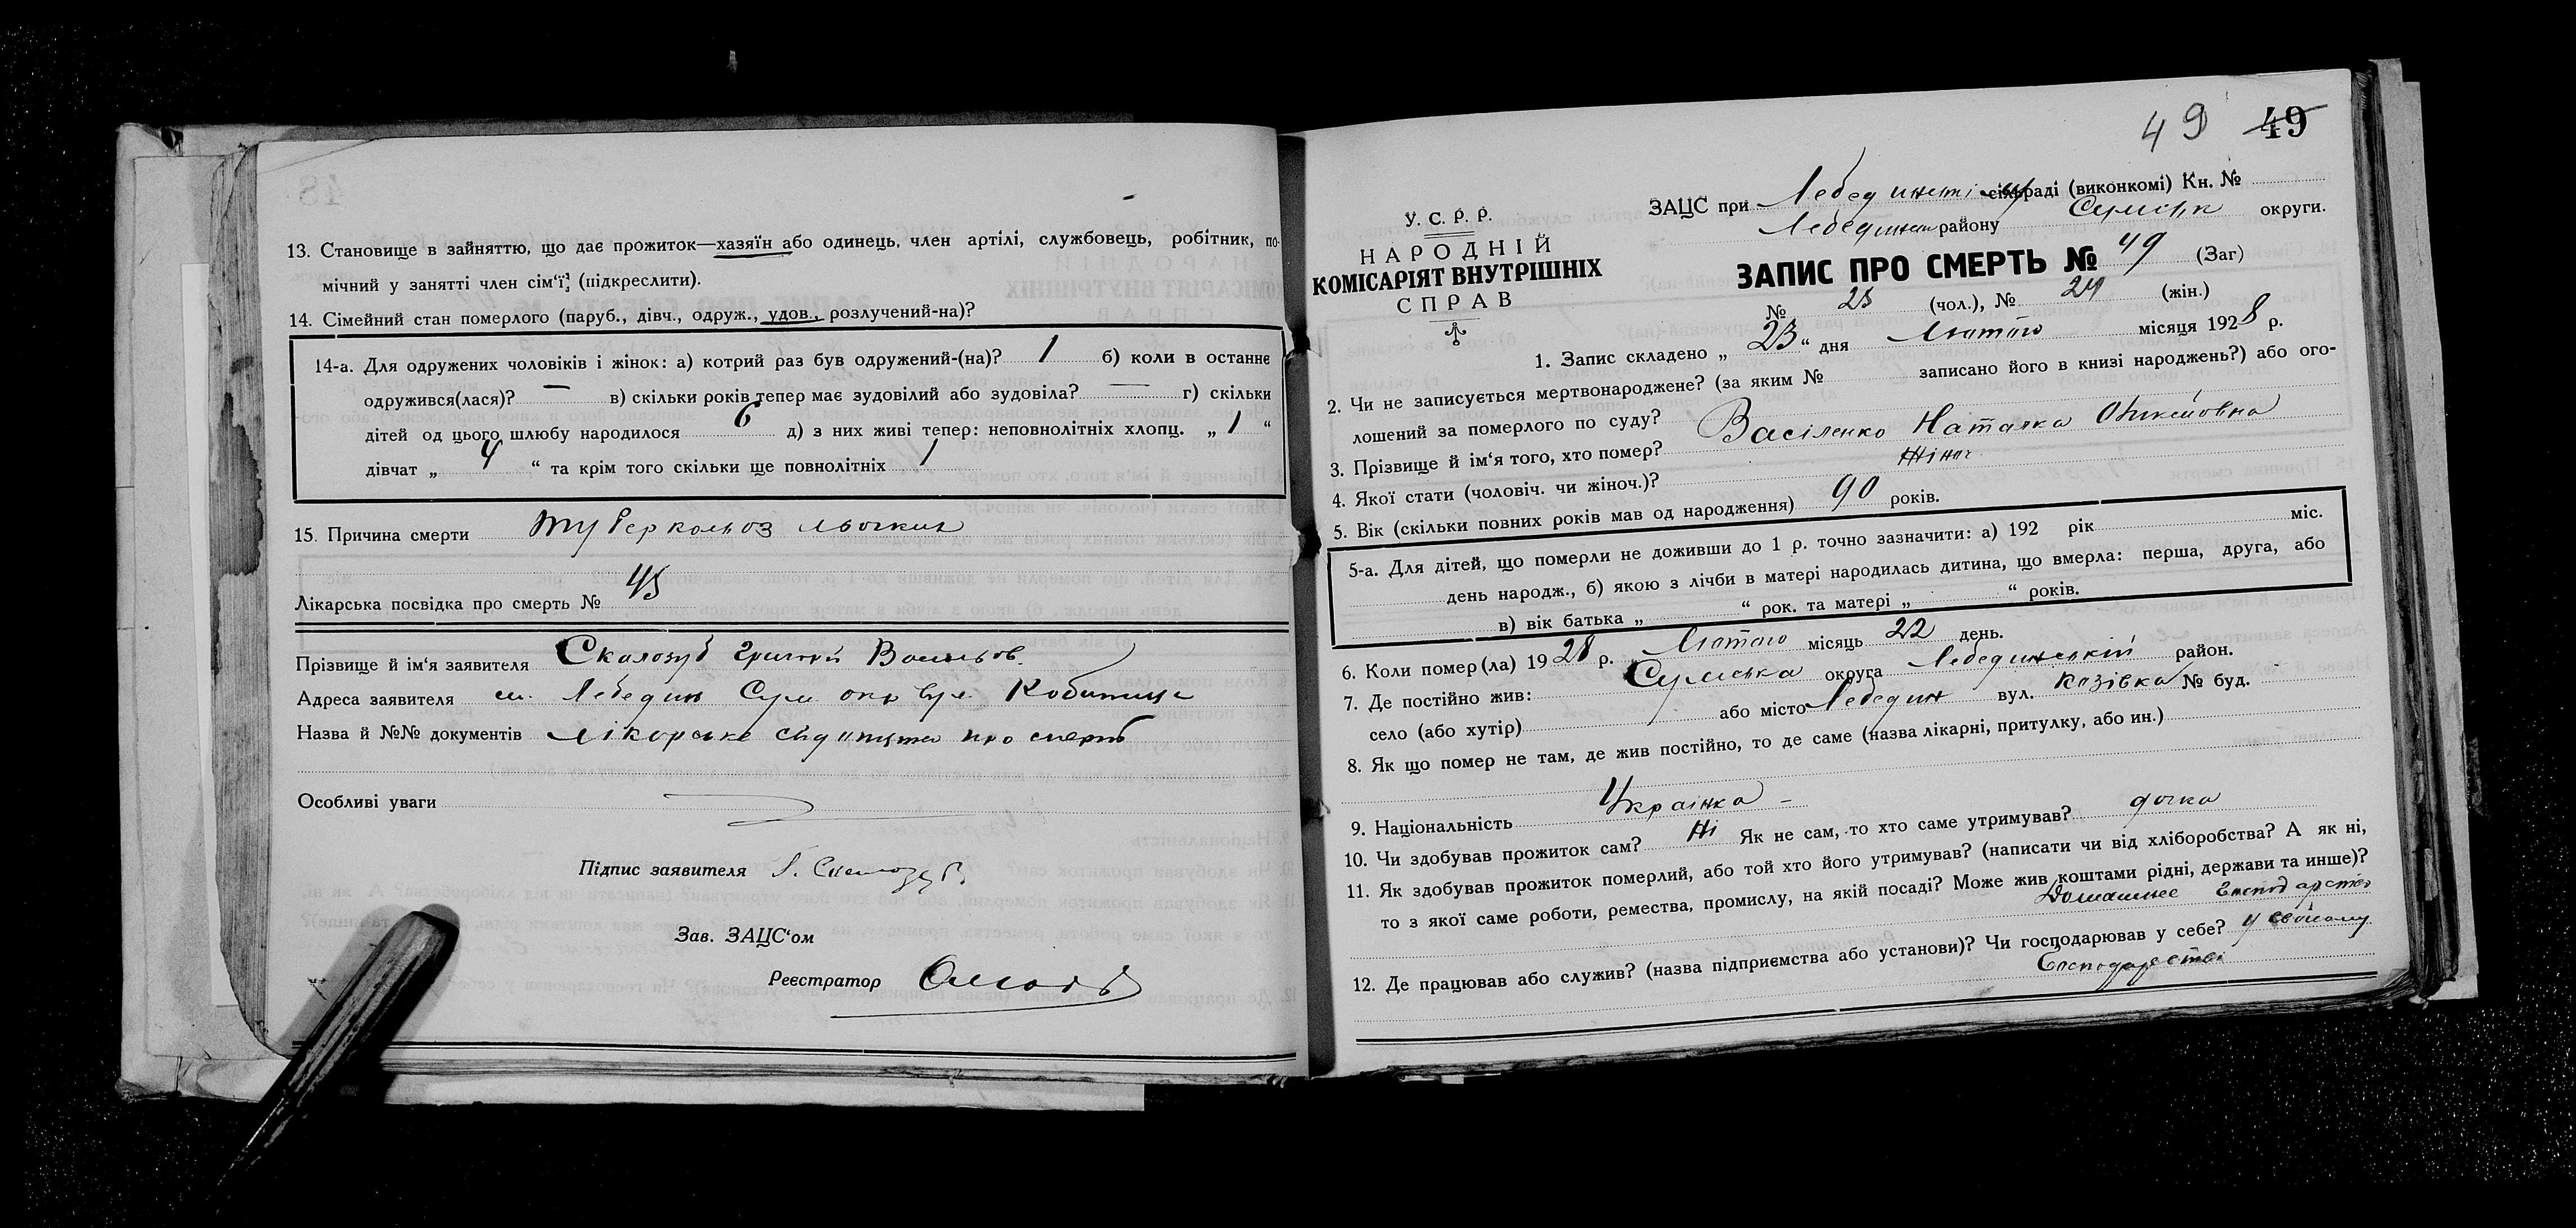 13. Становище в зайняттю, що дає прожиток—хазяїн або одинець, член артілі, службовець, робітник, по-
мічний у занятті член сім'ї (підкреслити).
14. Сімейний стан померлого (паруб., дівч., одруж., удов., розлучений-на)?
14-а. Для одружених чоловіків і жінок: а) котрий раз був одружений-(на)? 1 б) коли в останнє
одружився(лася)? — в) скільки років тепер має зудовілий або зудовіла? — г) скільки
дітей од цього шлюбу народилося 6 д) з них живі тепер: неповнолітніх хлопц. „ 1 “
дівчат „ 4 “ та крім того скільки ще повнолітніх 1
15. Причина смерти туберкольоз
Лікарська посвідка про смерть № 45
Прізвище й ім'я заявителя Скалозуб Григорій Васильов.
Адреса заявителя см. Лебедин Сум. окр вул.
Назва й №№ документів Лікорське про смерть
Особливі уваги
Підпис заявителя Г. Скалозуб
Зав. ЗАЦС'ом
Реєстратор
49 49
У. С. Р. Р.
НАРОДНІЙ
КОМІСАРІЯТ ВНУТРІШНІХ
СПРАВ
ЗАЦС при сільраді (виконкомі) Кн. №
Лебединськ району Сумськ округи.
ЗАПИС ПРО СМЕРТЬ № 49 (Заг)
№ 25 (чол.), № 24 (жін.)
1. Запис складено „ 23 “ дня Лютого місяця 1928 р.
2. Чи не записується мертвонароджене? (за яким № записано його в книзі народжень?) або ого-
лошений за померлого по суду?
3. Прізвище й ім'я того, хто помер? Васіленко Наталка
4. Якої стати (чоловіч. чи жіноч.)? Жіноч
5. Вік (скільки повних років мав од народження) 90 років.
5-а. Для дітей, що померли не доживши до 1 р. точно зазначити: а) 192 рік міс.
день народж., б) якою з лічби в матері народилась дитина, що вмерла: перша, друга, або
в) вік батька „ “ рок. та матері „ “ років.
6. Коли помер(ла) 1928 р. Лютого місяць 22 день.
7. Де постійно жив: Сумська округа Лебединській район.
село (або хутір) або місто Лебедин вул. Казівка № буд.
8. Як що помер не там, де жив постійно, то де саме (назва лікарні, притулку, або ин.)
9. Національність Українка –
10. Чи здобував прожиток сам? Ні Як не сам, то хто саме утримував? дочка
11. Як здобував прожиток померлий, або той хто його утримував? (написати чи від хліборобства? А як ні,
то з якої саме роботи, ремества, промислу, на якій посаді? Може жив коштами рідні, держави та инше)?
Домашнее Господарство
12. Де працював або служив? (назва підприємства або установи)? Чи господарював у себе? у своему
Господарстві